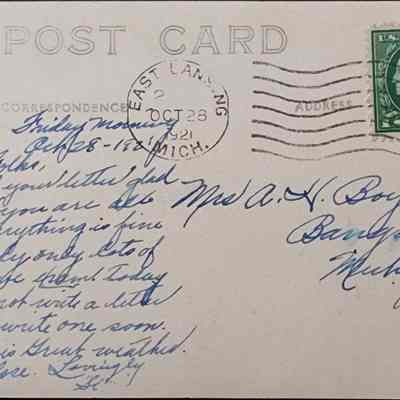 POST CARD
CORRESPONDENCE
ADDRESS
EAST LANSING
2
OCT 28
1921
MICH.
U.S.
Friday Morning
Oct 28-192
Folks,
your letter glad
you are all
everything is fine
only lots of
today
not write a letter
write one soon.
is Great weather.
Lovingly
Mrs A. H. Boy
Bang
Mich